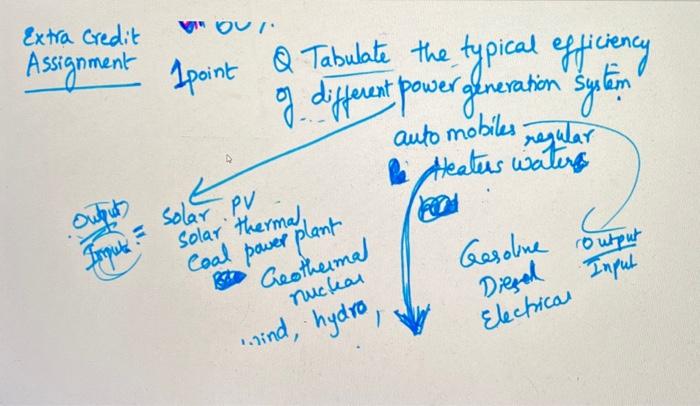 Extra Credit
Assignment
1point
Q Tabulate the typical efficiency
of different power generation system
automobiles regular
Heaters waters
Output
Input
=
Solar PV
Solar thermal
Coal power plant
Geothermal
nuclear
wind, hydro,
Gasoline
Diesel
Electrical
Output
Input